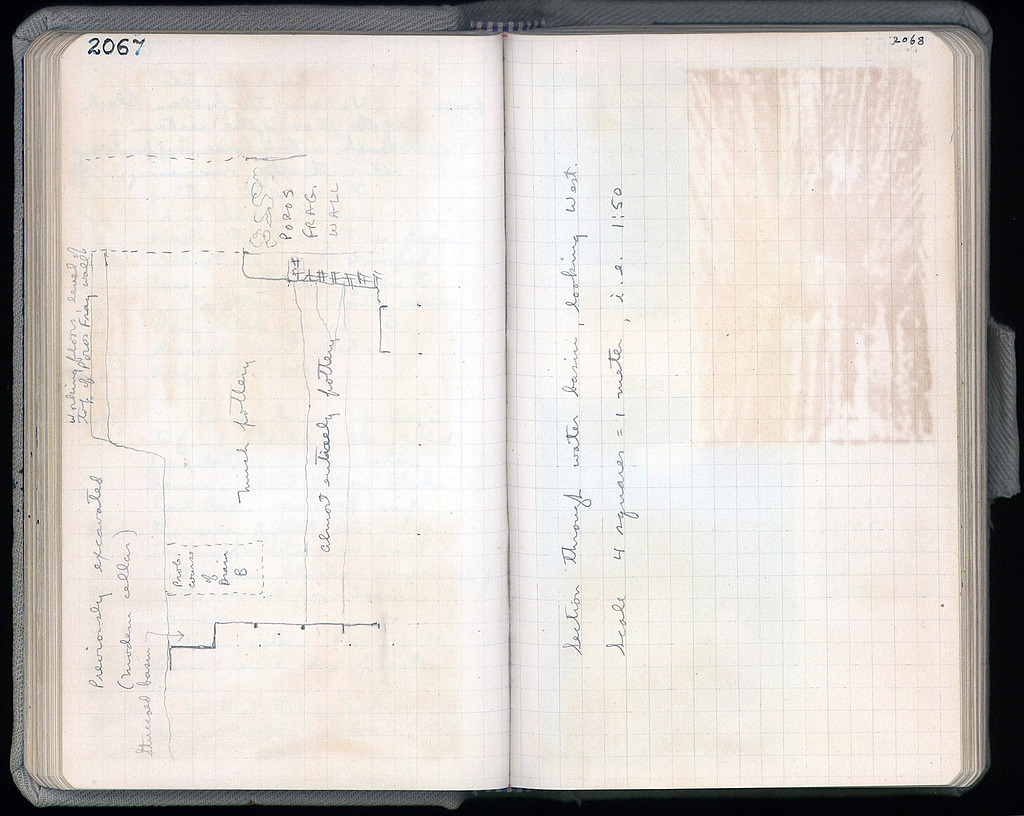 2067
Working floors, level of
top of Poros Frag wall
Previously excavated
(modern cellar)
Stuccoed basin
Prob.
course
of
Drain
B
much pottery
almost entirely pottery
POROS
FRAG.
WALL
2068
Section through water basin, looking West.
Scale 4 squares = 1 meter, i.e. 1:50